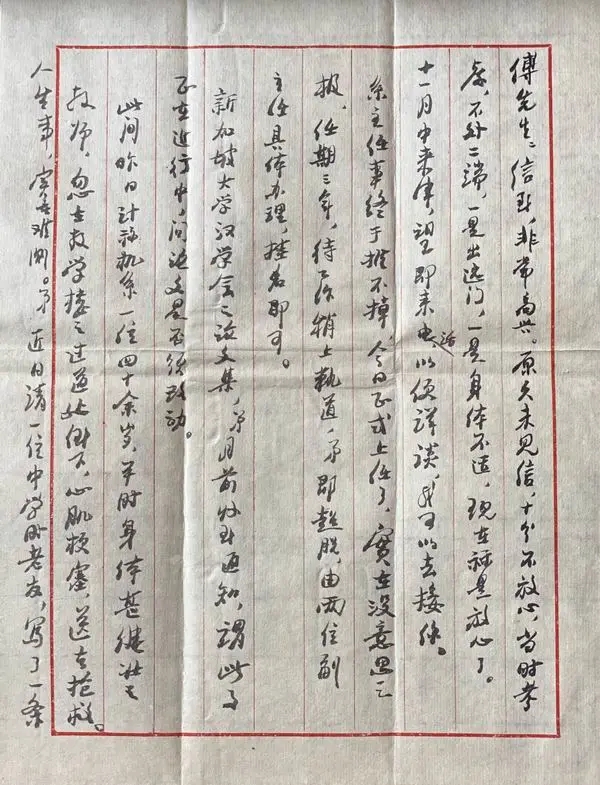 傅先生：信到，非常高兴。原久未见信，十分不放心，当时考
虑，不外二端，一是出远门，一是身体不适，现在祘是放心了。
十一月中来津，望即来电话以便详谈，我可以去接你。
系主任事终于推不掉，今日正式上任了，实在没意思之
极，任期三年，待工作稍上轨道，弟即超脱，由两位副
主任具体办理，挂名即可。
新加坡大学汉学会之论文集，弟月前收到通知，谓此事
正在进行中，问论文是否须改动。
此间昨日计祘机系一位四十余岁，平时身体甚健壮之
教师，忽在教学楼之过道处倒下，心肌梗塞，送去抢救。
人生事，实甚难测。弟近日请一位中学时老友，写了一条